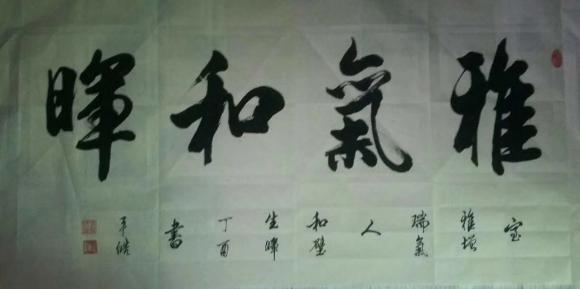 雅氣和暉
室
雅增
瑞氣
人
和壁
生暉
丁酉
書